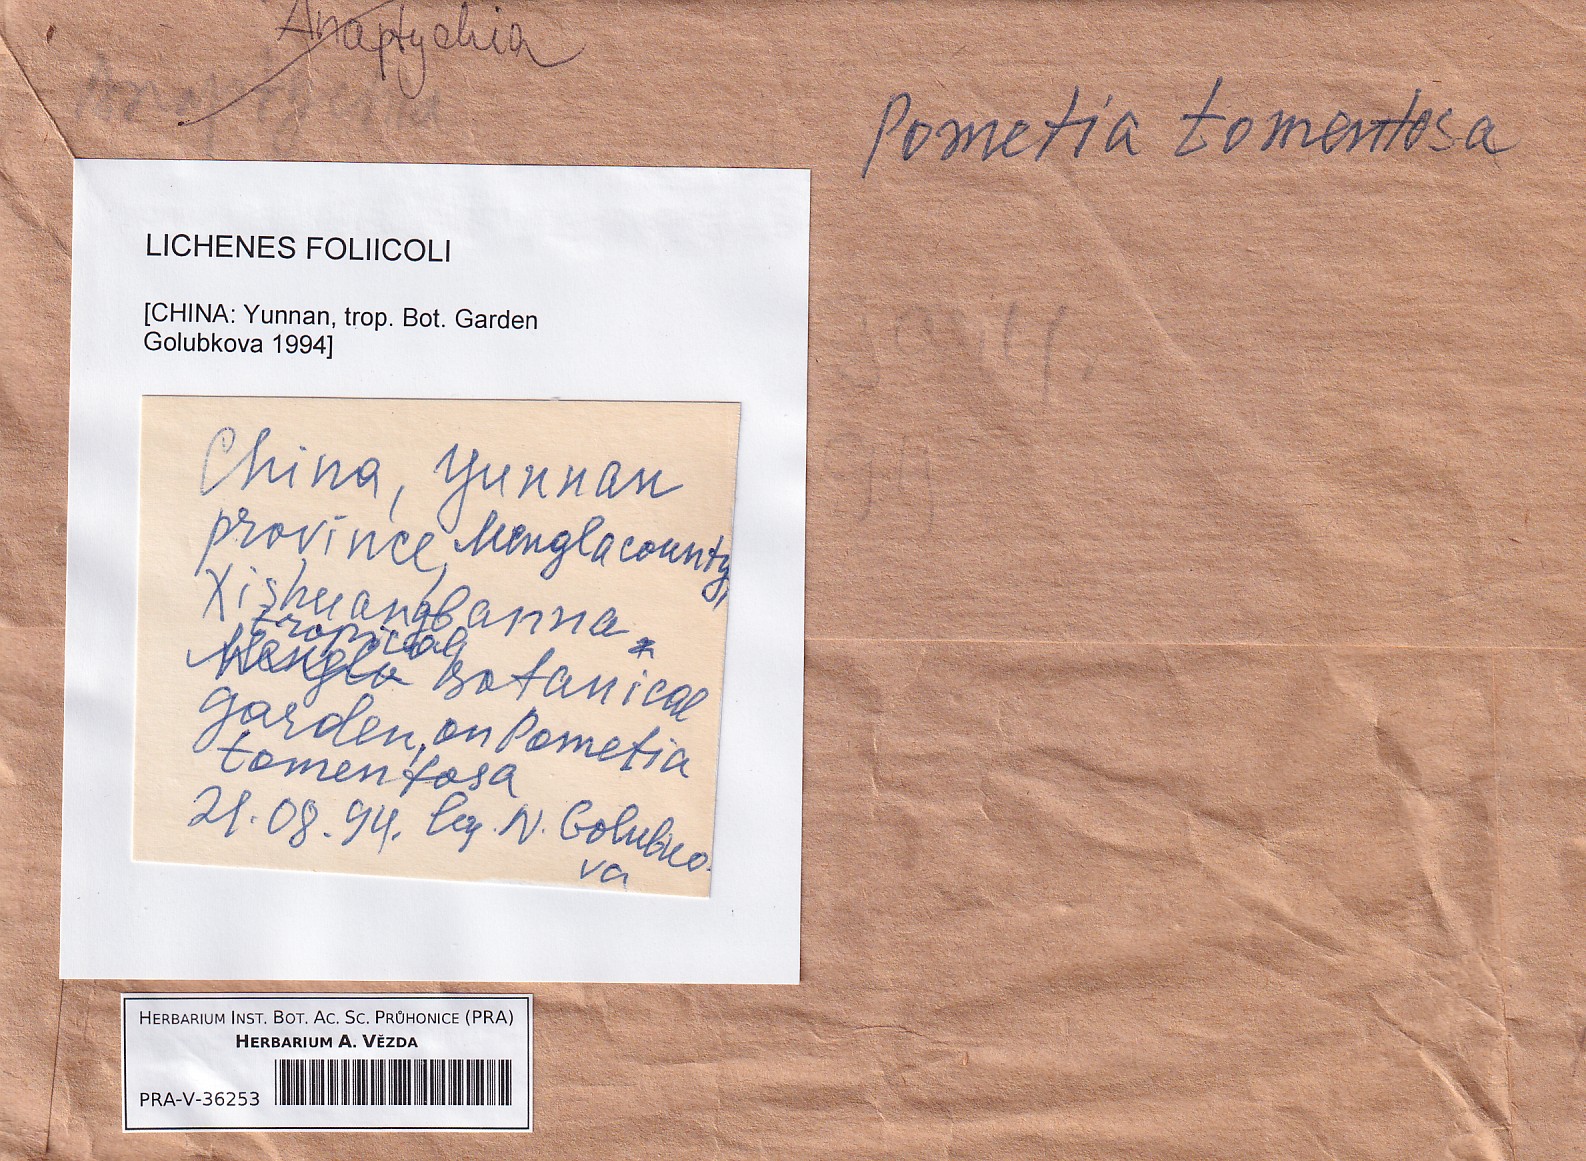 Anaptychia
Pometia tomentosa
LICHENES FOLIICOLI
[CHINA: Yunnan, trop. Bot. Garden
Golubkova 1994]
China, Yunnan
province, Mengla county,
Xishuangbanna
tropical
Mengla Botanical
garden, on Pometia
tomentosa
21.08.94. leg. N. Golubko-
va
HERBARIUM INST. BOT. AC. SC. PRŮHONICE (PRA)
HERBARIUM A. VĚZDA
PRA-V-36253